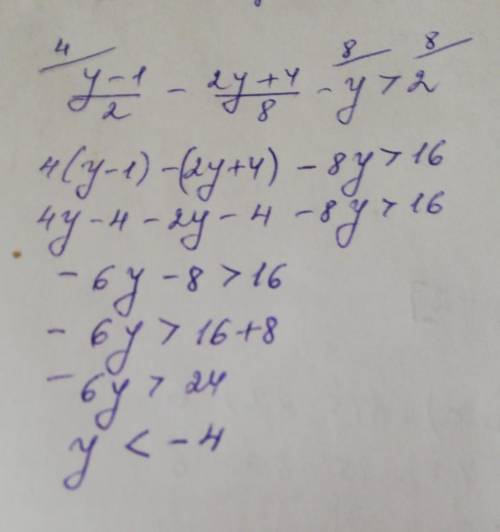 4/ (y-1)/2 - (2y+4)/8 - 8/ y > 8/ 2
4(y-1) -(2y+4) - 8y > 16
4y - 4 - 2y - 4 - 8y > 16
- 6y - 8 > 16
- 6y > 16+8
- 6y > 24
y < - 4